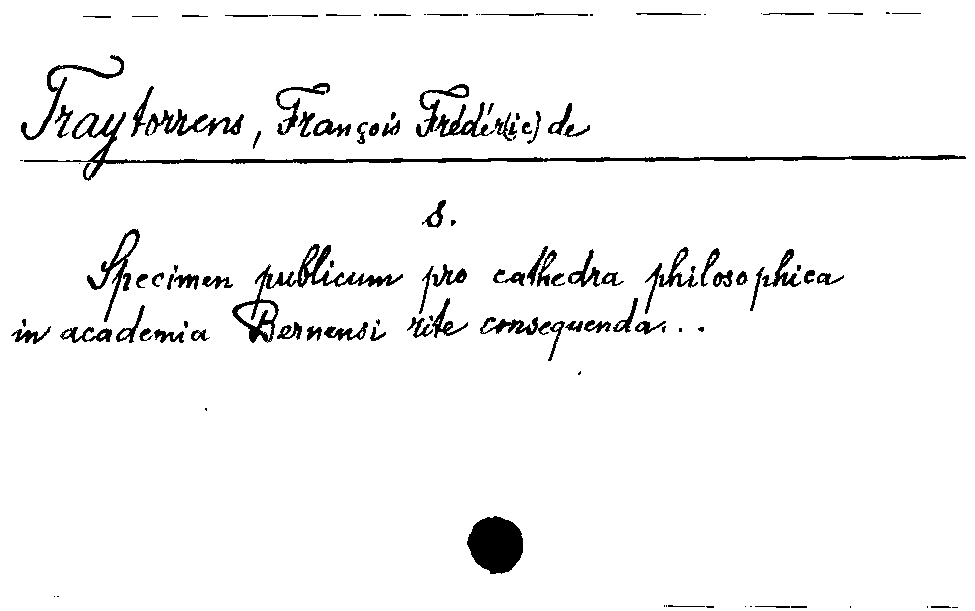 Traytorrens, François Frédér(ic) de
s.
Specimen publicum pro cathedra philosophica
in academia Bernensi rite consequenda...